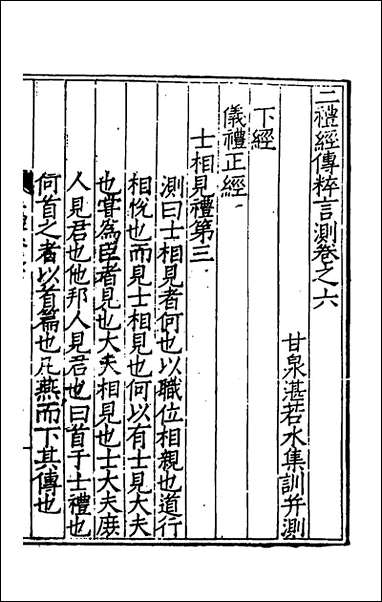 二禮經傳粹言測卷之六
甘泉湛若水集訓并測
下經
儀禮正經
士相見禮第三
測曰士相見者何也以職位相親也道行
相悅也而見士相見也何以有士見大夫
也嘗為臣者見也大夫相見也士大夫庶
人見君也他邦人見君也曰首于士禮也
何首之者以首篇也凡燕而下其傳也